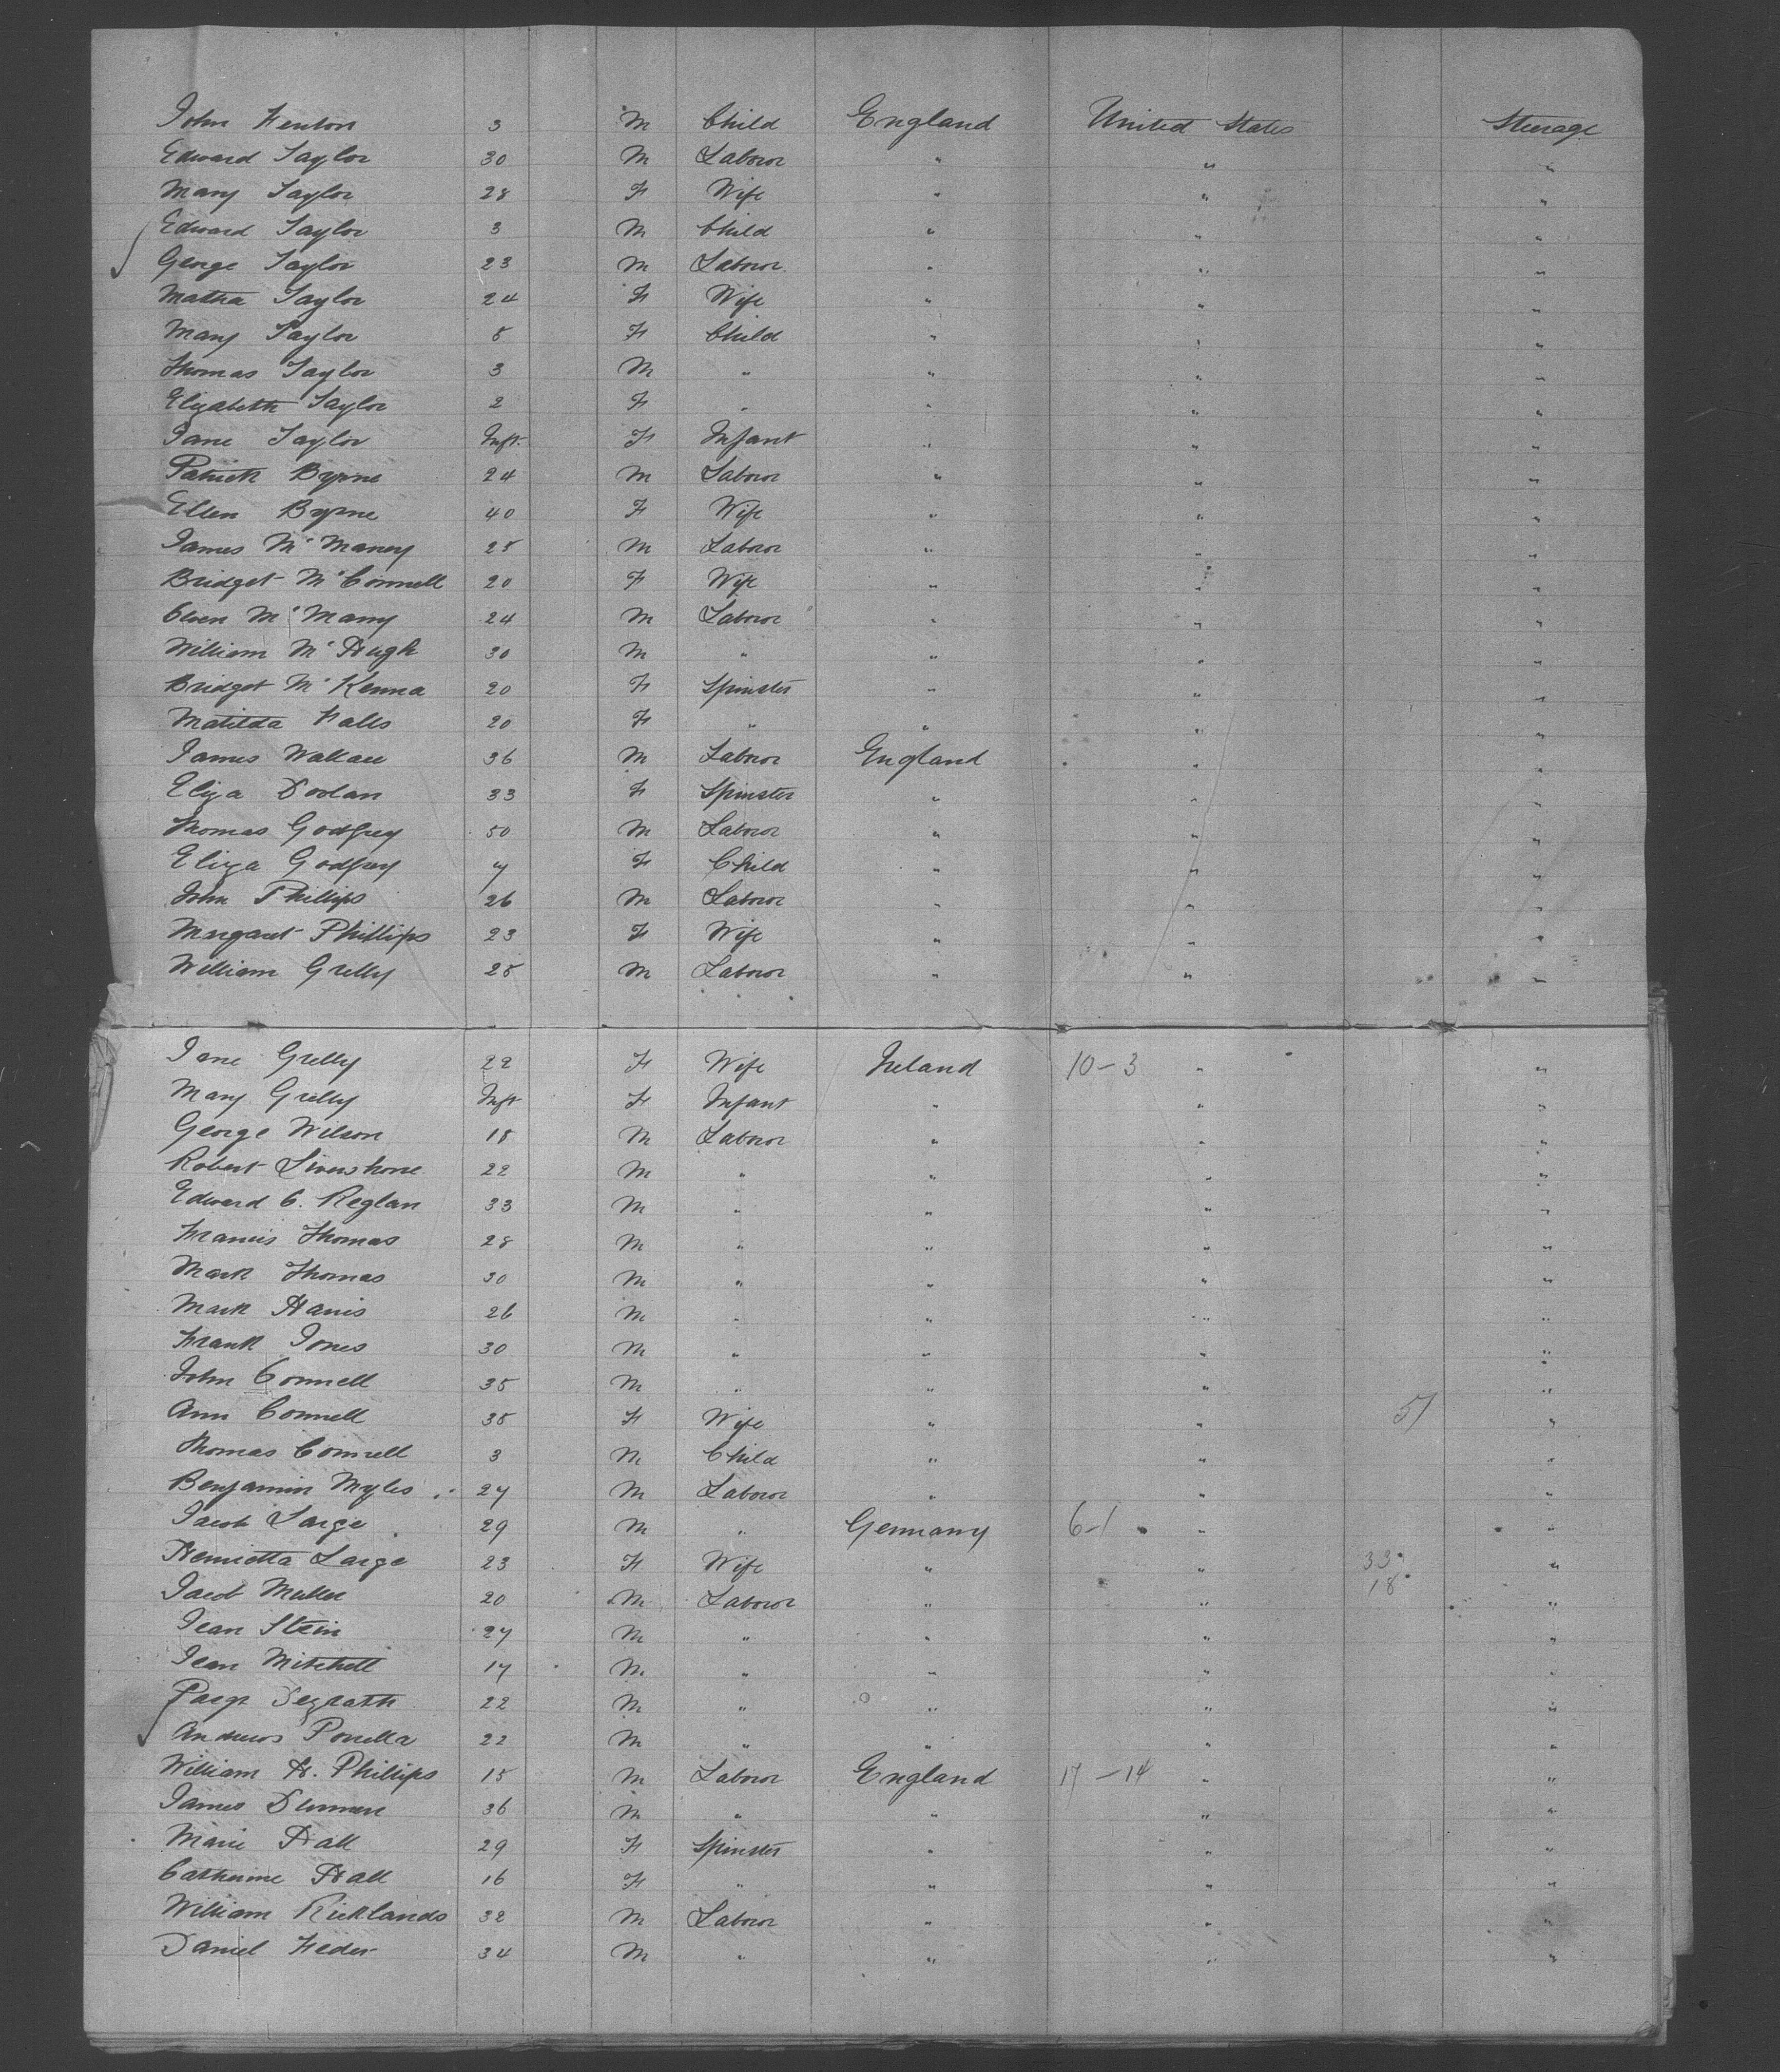 John Fenton 3 M Child England United States Steerage
Edward Taylor 30 M Laboror " " "
Mary Taylor 28 F Wife " " "
Edward Taylor 3 M Child " " "
George Taylor 23 M Laboror " " "
Matha Taylor 24 F Wife " " "
Mary Taylor 5 F Child " " "
Thomas Taylor 3 M " " " "
Elizabeth Taylor 2 F " " " "
Jane Taylor Inft. F Infant " " "
Patrick Byrne 24 M Laboror " " "
Ellen Byrne 40 F Wife " " "
James McManey 25 M Laboror " " "
Bridget McConnell 20 F Wife " " "
Owen McMany 24 M Laboror " " "
William McHugh 30 M " " " "
Bridget McKenna 20 F Spinster " " "
Matilda Falls 20 F " " " "
James Wallace 36 M Laboror England " "
Eliza Doolan 33 F Spinster " " "
Thomas Godfrey 50 M Laboror " " "
Eliza Godfrey 7 F Child " " "
John Phillips 26 M Laboror " " "
Margaret Phillips 23 F Wife " " "
William Grelly 25 M Laboror " " "
Jane Grelly 22 F Wife Ireland 10-3 " "
Mary Grelly Inft F Infant " " "
George Wilson 18 M Laboror " " "
Robert 22 M " " " "
Edward C. Reglan 33 M " " " "
Francis Thomas 28 M " " " "
Mark Thomas 30 M " " " "
Mark Harris 26 M " " " "
Frank Jones 30 M " " " "
John Connell 35 M " " " "
Ann Connell 35 F Wife " " 51 "
Thomas Connell 3 M Child " " "
Benjamin Myles 27 M Laboror " " "
Jacob Large 29 M " Germany 6-1 " "
Henrietta Large 23 F Wife " " 33 "
18
Jacob Muller 20 M Laboror " " "
Jean Stein 27 M " " " "
Jean Mitchell 17 M " " " "
Degrath 22 M " " " "
Andrews 22 M " " " "
William H. Phillips 15 M Laboror England 17-14 " "
James 36 M " " " "
Marie Hall 29 F Spinster " " "
Catherine Hall 16 F " " " "
William Ricklands 32 M Laboror " " "
Daniel Feder 34 M " " " "